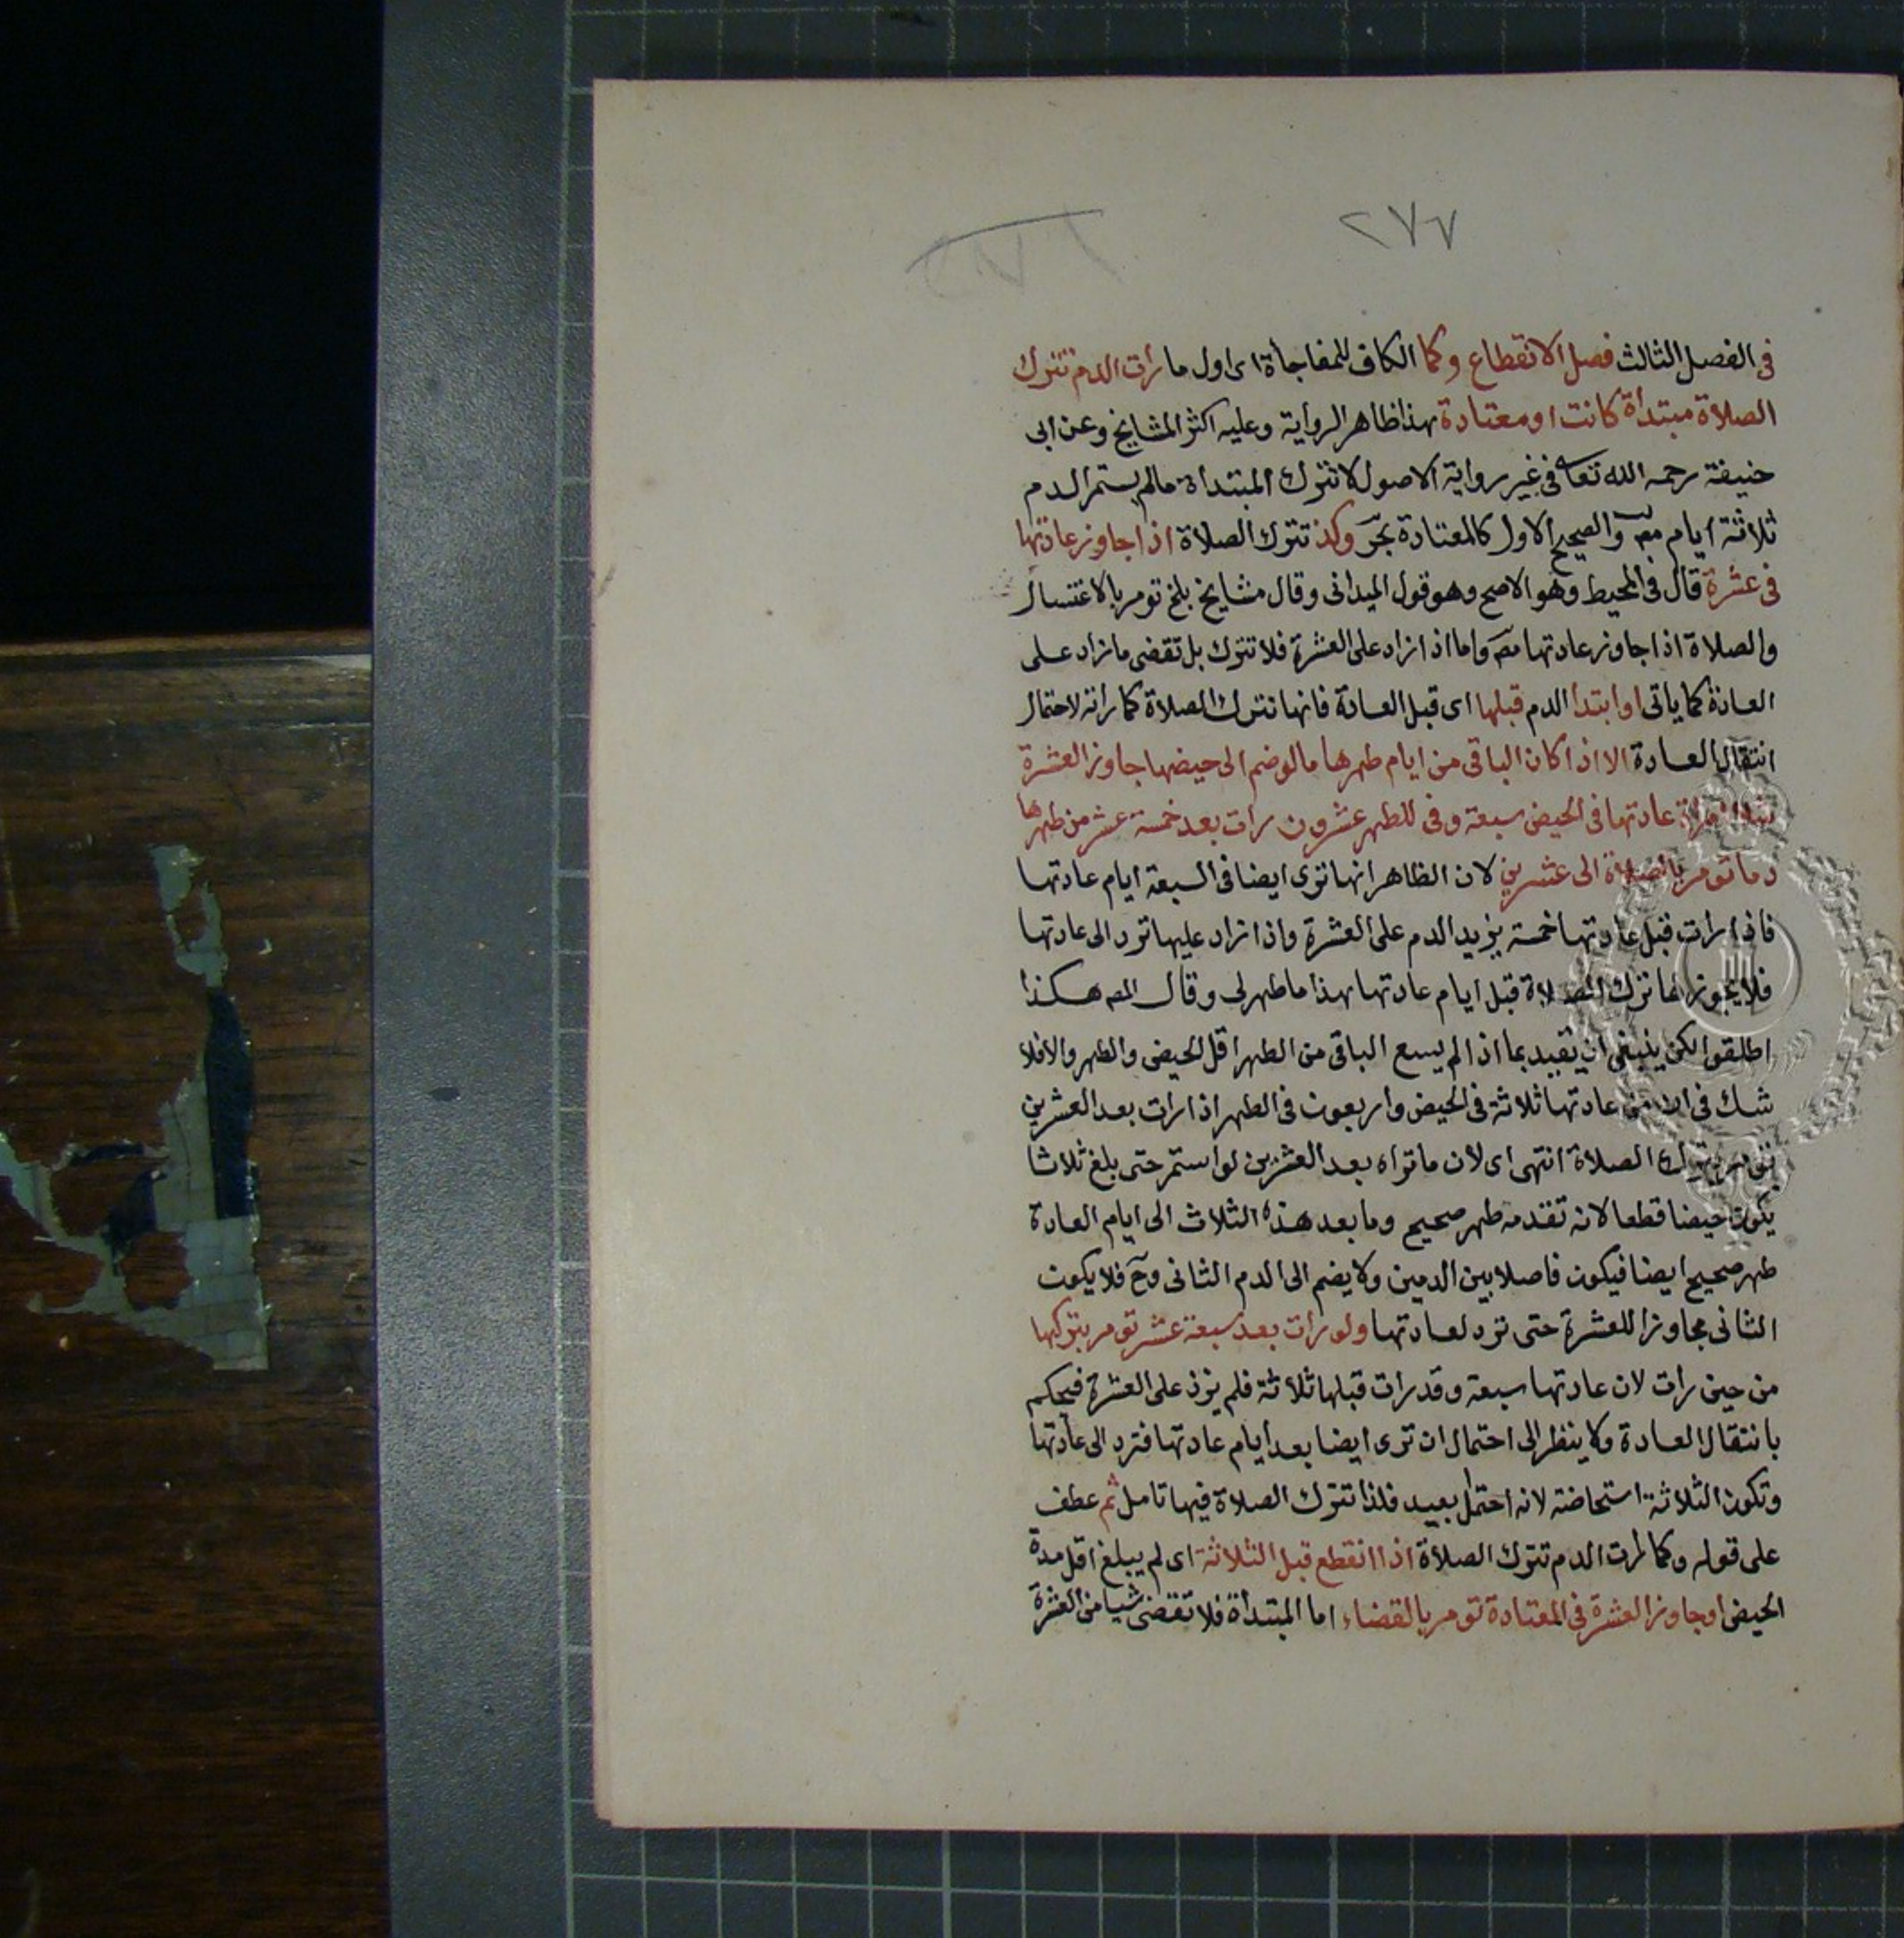 ٢٧٧
في الفصل الثالث فصل الانقطاع وكما الكاف للمفاجأة اى اول ما رأت الدم تترك
الصلاة مبتدأة كانت او معتادة هذا ظاهر الرواية وعليه اكثر المشايخ وعن ابى
حنيفة رحمه الله تعا فى غير رواية الاصول لا تترك المبتداة مالم يستمر الدم
ثلاثة ايام والصحيح الاول كالمعتادة بحر وكذ تترك الصلاة اذا جاوز عادتها
فى عشرة قال فى المحيط وهو الاصح وهو قول الميدانى وقال مشايخ بلخ تومر بالاغتسال
والصلاة اذا جاوز عادتها مصـ واما اذا زاد على العشرة فلا تترك بل تقضى ما زاد على
العادة كما ياتى او ابتدا الدم قبلها اى قبل العادة فانها تترك الصلاة كما راته لاحتمال
انتقال العادة الا اذا كان الباقى من ايام طهرها ما لو ضم الى حيضها جاوز العشرة
عادتها فى الحيض سبعة وفى للطهر عشرون رات بعد خمسة عشر من طهرها
دما تومر بالصلاة الى عشرين لان الظاهر انها ترى ايضا فى السبعة ايام عادتها
فاذا رات قبل عادتها خمسة يزيد الدم على العشرة واذا زاد عليها ترد الى عادتها
فلا يجوز لها ترك الصلاة قبل ايام عادتها هذا ما ظهر لى وقال المصـ هكذا
اطلقوا لكن ينبغى ان تقيد بما اذا لم يسع الباقى من الطهر اقل الحيض والطهر والا فلا
شك فى ان من عادتها ثلاثة فى الحيض واربعون فى الطهر اذا رات بعد العشرين
تومر بترك الصلاة انتهى اى لان ما تراه بعد العشرين لو استمر حتى بلغ ثلاثا
يكون حيضا قطعا لانه تقدمه طهر صحيح وما بعد هذه الثلاث الى ايام العادة
طهر صحيح ايضا فيكون فاصلا بين الدمين ولا يضم الى الدم الثانى وح فلا يكون
الثانى مجاوزا للعشرة حتى ترد لعادتها ولو رات بعد سبعة عشر تومر بتركها
من حين رات لان عادتها سبعة وقد رات قبلها ثلاثة فلم يزد على العشرة فيحكم
بانتقال العادة ولا ينظر الى احتمال ان ترى ايضا بعد ايام عادتها فترد الى عادتها
وتكون الثلاثة استحاضة لانه احتمال بعيد فلذا تترك الصلاة فيها تامل ثم عطف
على قوله وكما رات الدم تترك الصلاة اذا انقطع قبل الثلاثة اى لم يبلغ اقل مدة
الحيض او جاوز العشرة فى المعتادة تومر بالقضاء اما المبتدأة فلا تقضى شيا من العشرة